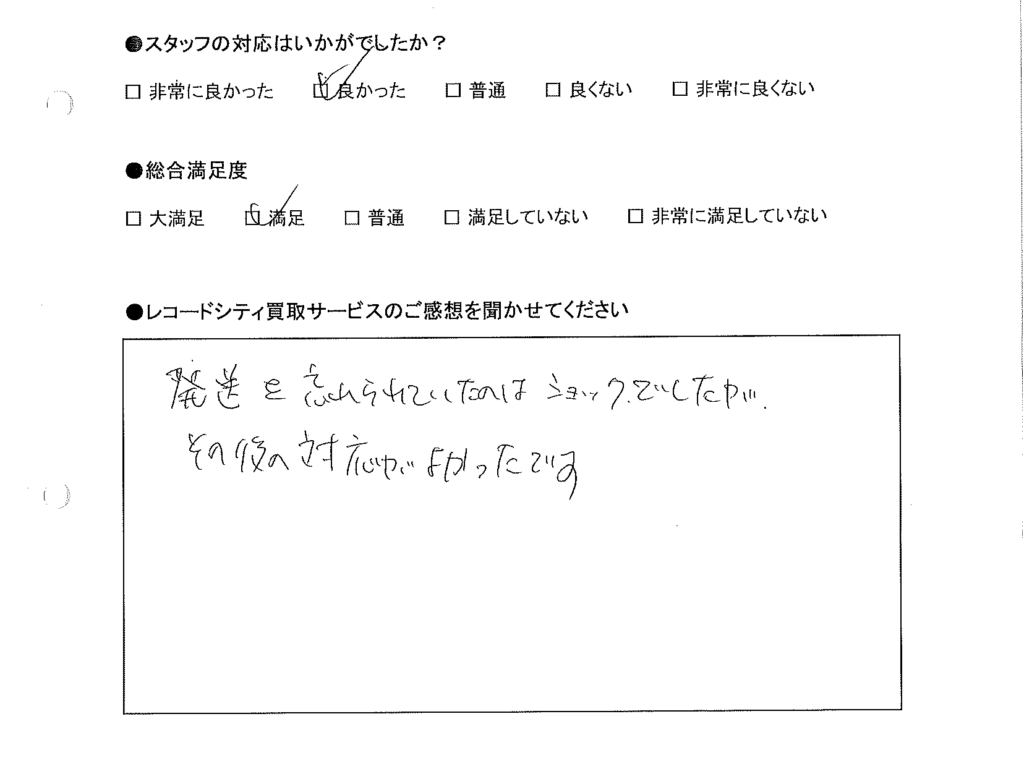 ●スタッフの対応はいかがでしたか？
□ 非常に良かった □ 良かった □ 普通 □ 良くない □ 非常に良くない
●総合満足度
□ 大満足 □ 満足 □ 普通 □ 満足していない □ 非常に満足していない
●レコードシティ買取サービスのご感想を聞かせてください
発送を忘れられていたのはショックでしたが、
その後の対応がよかったです